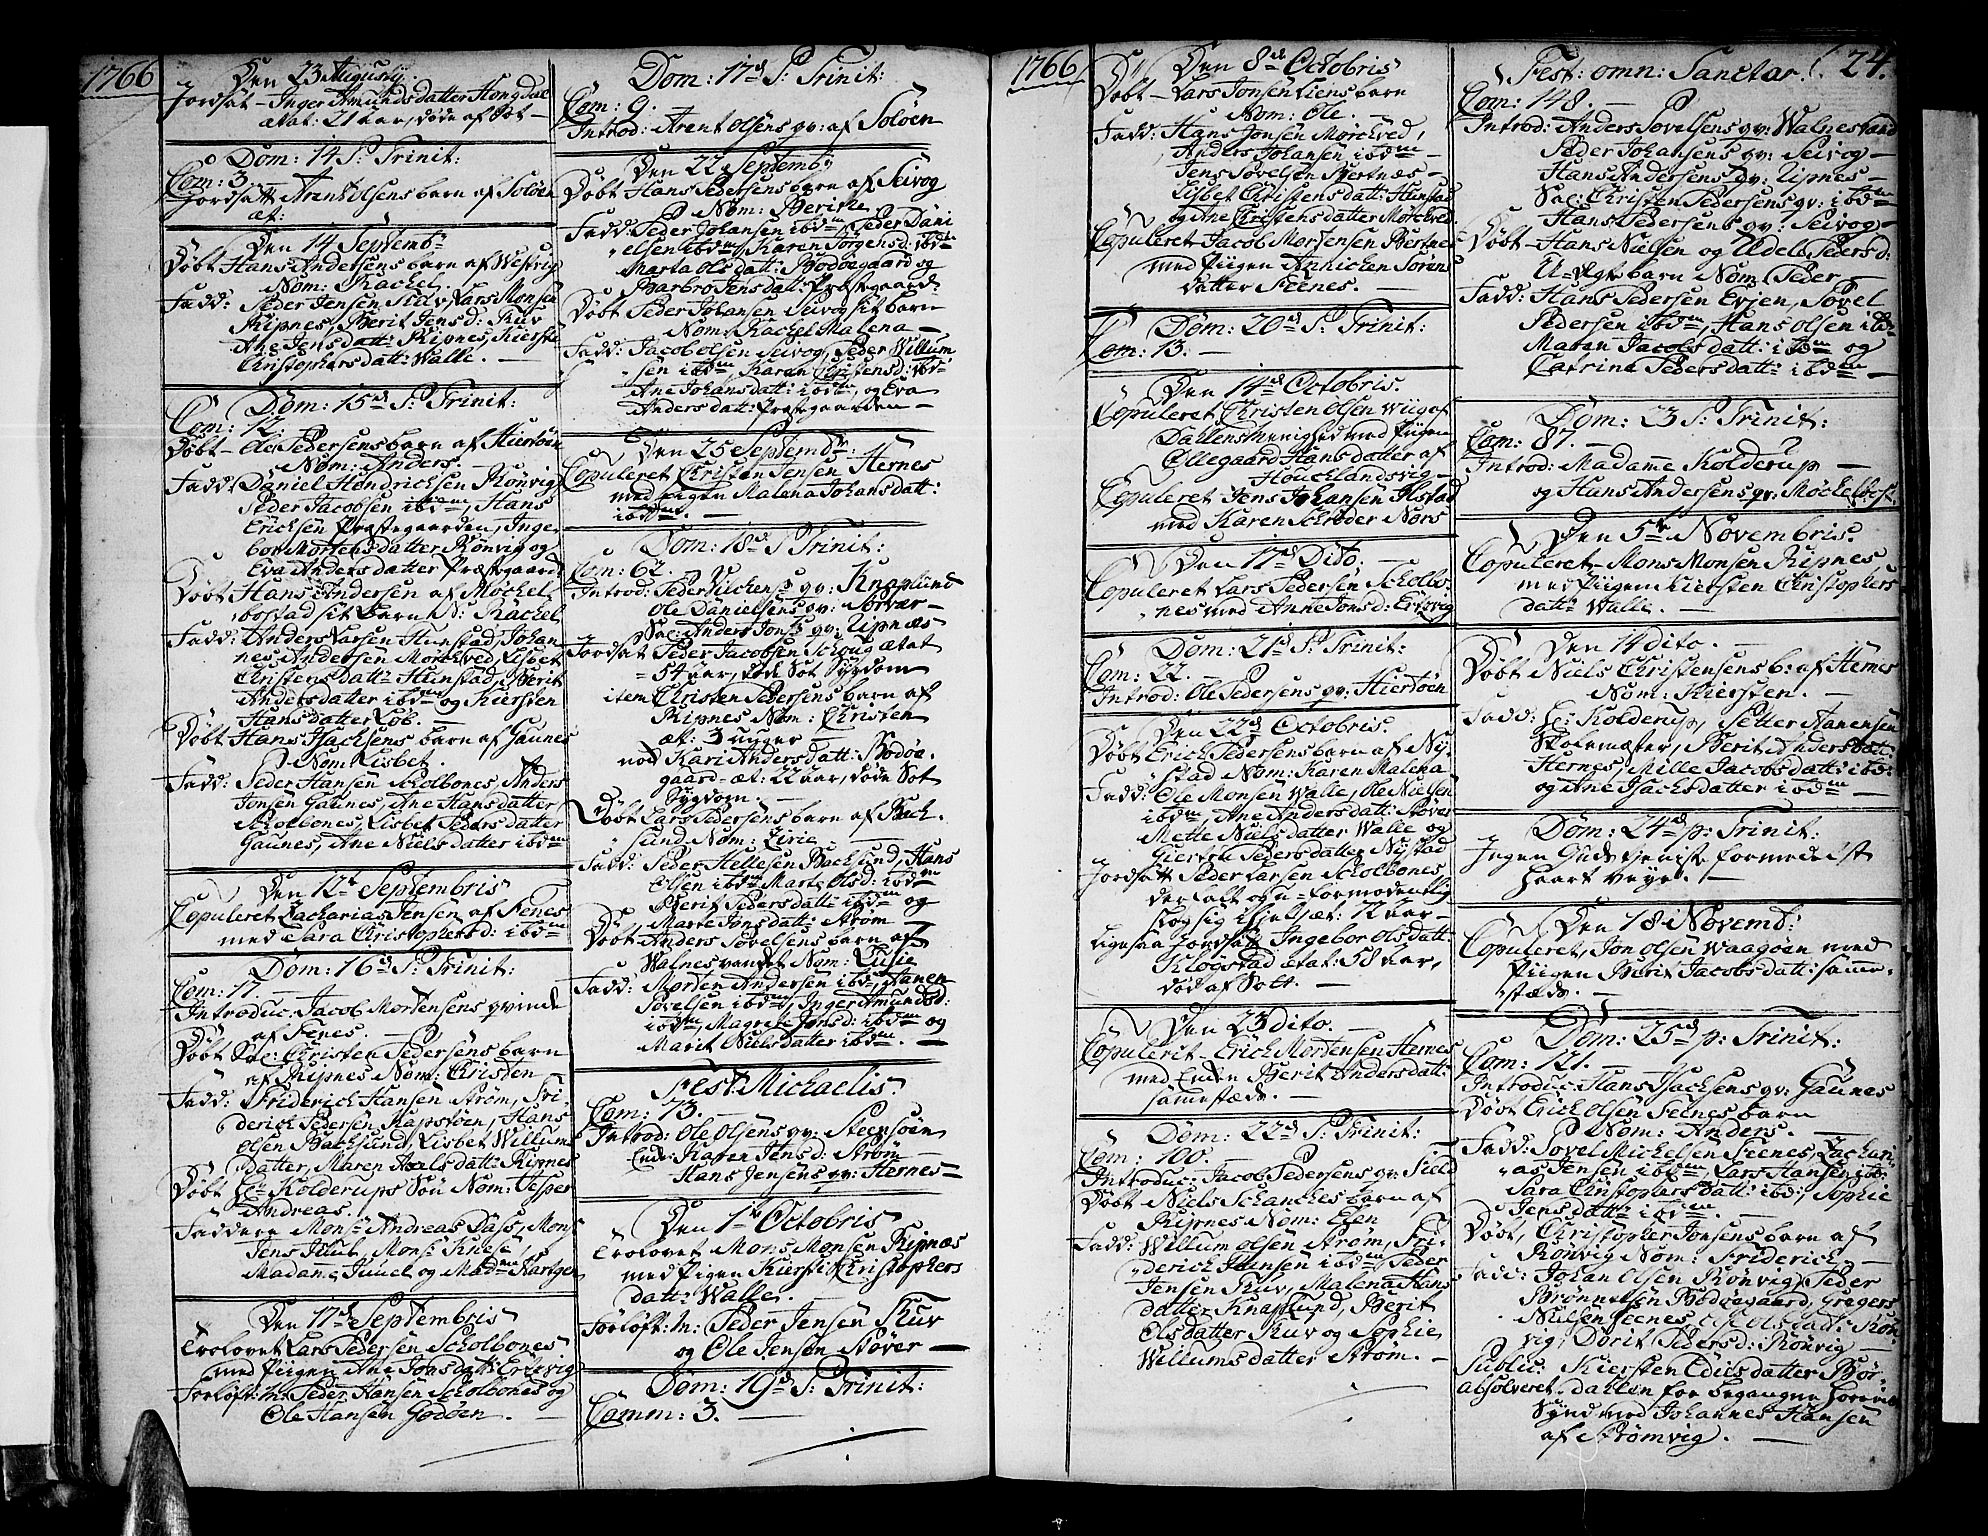 1766
Den 23 Augusty:
Jordsat - Inger Amunds datter Hongdal
ætat: 21 aar, døde af Sot -
Dom: 14 P: Trinit:
Com: 3 -
Jordsatt Arent Olsens barn af Soløen
æt:
Den 14 Septemb:
Døbt Hans Andersens barn af Westvig
Nom: Rachel.
Fadd: Peder Jensen Skiv, Lars Monsen
Ripnes, Berit Jens d: Skuv
Ane Jens datt: Ripnes, Kierste
Christophers datt: Walle. -
Dom: 15de P: Trinit:
Com: 12. -
Døbt - Ole Pedersens barn af Hiertøen
Nom: Anders. -
Fadd: Daniel Hendrichsen Rønvig
Peder Jacobsen ibdem, Hans
Ericksen Præstegaarden, Inge-
bor Mortens datter Rønvig og
Eva Anders datter Præstegaard
Døbt Hans Andersen af Møchel-
bostad sit barn N: Rachel
Fadd: Anders Larsen Hunstad, Johan-
nes Andersen Mørchved, Lisbet
Christens datt: Hunstad, Berit
Anders datter ibdm og Kiersten
Hans datter Løb. -
Døbt Hans Isachsens barn af Gaunes
Nom: Lisbet. -
Fadd: Peder Hansen Skolbones, Anders
Jonsen Gaunes, Ane Hans datter
Skolbones, Lisbet Peders datter
Gaunes, Ane Niels datter ibdm
Den 12te Septembris
Copuleret Zacharias Jensen af Fenes
med Sara Christophers d: ibdm
Dom: 16de P: Trinit:
Com: 17 -
Introduc: Jacob Mortensens qvinde
af Fenes. -
Døbt Sac: Christen Pedersens barn
af Ripnes Nom: Christen
Fadd: Friderich Hansen Strøm, Fri-
derich Pedersen Kapstøen, Hans
Olsen Bachsund, Lisbet Willums
datter, Maren Axels datt: Ripnes
Døbt Hr: Kolderups Søn Nom: Jesper
Andreas.
Faddere Mons: Andreas Dass, Mons
Jens Juul, Mons: Knese,
Madame Juuel og Madm Hartgen
Den 17de Septembris
Trolovet Lars Pedersen Scholbones
med Piigen Ane Jons datt: Erisvig
Forløft: M: Peder Hansen Scholbones og
Ole Hansen Godøen. -
Dom: 17de P: Trinit:
Com: 9. -
Introd: Arent Olsens qv: af Soløen
Den 22 Septembr
Døbt Hans Pedersens barn af Seivog
Nom: Berithe.
Fadd: Peder Johansen ibdm, Peder Dani-
elsen ibdm, Karen Jørgens d: ibdm
Marta Ols datt: Bodøegaard og
Barbro Jens datt: Præstegaard
Døbt Peder Johansen Seivog sit barn
Nom: Rachel Malena -
Fadd: Jacob Olsen Seivog, Peder Willum-
sen ibdm, Karen Christens d: ibd-
Ane Johans datt: ibdm, og Eva
Anders datt: Præstegaarden -
Den 25 Septembr:
Copuleret Christen Jensen Hernes
med Piigen Malena Johans datt:
ibdm. -
Dom: 18de P: Trinit:
Com: 62. -
Introd: Peder Vilchens qv: Knaplund
Ole Danielsens qv: Sorvær -
Sac: Anders Jons: qv: Ripnæs
Jordsat Peder Jacobsen Schoug ætat
- 54 aar, døde Sot Sygdom
item Christen Pedersens barn af
Ripnes Nom: Christen
æt: 3 uger
nok Kari Anders datt: Bodøe-
gaard - æt: 22 aar, døde Sot
Sygdom. -
Døbt Lars Pedersens barn af Bach-
sund Nom: Zirie
Fadd: Peder Hellesen Bachsund, Hans
Elsen ibdm Marte Ols d: ibdm
Berit Peders datt: ibdm og
Marte Jons datt: Strøm -
Døbt Anders Søvelsens barn af
Walnesvandet Nom: Cecilie
Fadd: Morten Andersen ibdm, Hanen
Søvelsen ibdm, Inger Amunds d:
ibdm, Magrete Jons d: ibdm og
Marit Niels datter ibdm. -
Fest: Michaelis.
Com: 73. -
Introd: Ole Olsens qv: Steensøen
Enke Karen Jens d: Strøm -
Hans Jensens qv: Hernes -
Den 1te Octobris
Trolovet Mons Monsen Ripnæs
med Pigen Kiersti Christophers
datt: Walle. -
Forløft: M: Peder Jensen Skuv
og Ole Jensen Støver -
Dom: 19de P: Trinit:
Comm: 3. -
1766
Den 8de Octobris
Døbt - Lars Jonsen Liens barn
Nom: Ole. -
Fadd: Hans Jensen Mørchved,
Anders Johansen ibdm -
Jens Søvelsen Bertnæs -
Lisbet Christens datt: Hunstad
og Ane Christens datter Mørchved
Copuleret Jacob Mortensen Bertnes
med Piigen Annichen Sørens
datter Seenes. -
Dom: 20de P: Trinit:
Com: 13. -
Den 14de Octobris.
Copuleret Christen Olsen Wiig af
Dahlens Menighed med Piigen
Øllegaard Hans datter af
Houcklandsvig -
Copuleret Jens Johansen Ilstad
med Karen Schrøder Nors
Den 17de Dito. -
Copuleret Lars Pedersen Scholbo-
nes med Anne Jons d: Erisvig
Dom: 21de P: Trinit:
Com: 22. -
Introd: Ole Pedersens qv: Hiertøen
Den 22de Octobris.
Døbt Erich Pedersens barn af Ny-
stad Nom: Karen Malena
Fadd: Ole Monsen Walle, Ole Nielsen
ibdm, Ane Anders datt: Støver
Mette Niels datter Walle og
Giertru Peders datter Nystad
Jordsatt Peder Larsen Scholbones,
der falt og u-formodentlig
slog sig ihjel, æt: 72 aar -
ligesaa Jordsat Ingebor Ols datt:
Kløgstad ætat: 58 aar,
død af Sott. -
Den 23 Dito. -
Copuleret - Erich Mortensen Hernes
med Enke Berit Anders datt:
sammestæds. -
Dom: 22de P: Trinit:
Com: 100. -
Introduc: Jacob Pedersens qv: Sield
Døbt Niels Schanches barn af
Ripnes Nom: Elen
Fadd: Willum Olsen Strøm, Fri-
derich Jensen ibdm, Peder
Jensen Skuv, Malena Hans
datter Knaplund, Berit
Ols datter Skuv og Sophie
Willums datter Strøm. -
24.
Fest: omn: Sanctor.
Com: 148. -
Introd: Anders Søvelsens qv: Walnesvand
Peder Johansens qv: Seivog -
Hans Andersens qv: Ripnes -
Sac: Christen Pedersens qv: ibdm
Hans Pedersens qv: Seivog -
Døbt - Hans Nielsen og Adel Peders d:
U-ægt barn Nom: Peder -
Fadd: Hans Pedersen Evjen, Søvel
Pedersen ibdm, Hans Olsen ibd-
Maren Jacobs datt: ibdm og
Catrina Peders datt: ibdm -
Dom: 23 P: Trinit:
Com: 87. -
Introd: Madame Kolderup -
og Hans Andersens qv: Møchelbost
Den 5te Novembris.
Copuleret - Mons Monsen Ripnes,
med Piigen Kiersten Christophers
datt: Walle. -
Den 14 dito. -
Døbt Niels Christensens b: af Hernes
Nom: Kiersten. -
Fadd: Hr: Kolderup, Petter Aanensen
Skolemæster, Berit Anders datt:
Hernes, Mille Jacobs datt: ibd:
og Ane Isachs datter ibdm -
Dom: 24de p: Trinit:
Ingen Guds tieniste formedelst
haart Veyr. -
Den 18 Novemb:
Copuleret, Jon Olsen Waagøen med
Piigen Berit Jacobs datt: samme-
stæds. -
Dom: 25de p: Trinit:
Com: 121. -
Introduc: Hans Isachsens qv: Gaunes
Døbt Erich Olsen Seenes barn
Nom: Anders. -
Fadd: Søvel Michelsen Seenes, Zachari-
as Jensen ibdm, Lars Hansen ibd:
Sara Christophers datt: ibd: Sophie
Jens datt: ibdm. -
Døbt, Christopher Jonsens barn af
Rønvig Nom: Friderich -
Fadd: Johan Olsen Rønvig, Peder
Brønnelsen Bodøegaard, Gregers
Nielsen Seenes, Ols datt: Røn-
vig, Dorit Peders d: Rønvig -
Public: Kiersten Edis datter Bør-
absolveret. dahlen for begangne Horerie
Synd med Johannes Hansen
af Strømvig. -